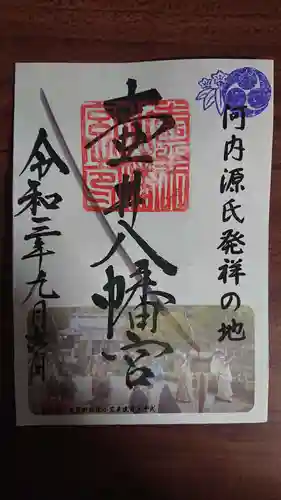 河内源氏発祥の地
壷井八幡宮
令和三年九月吉日